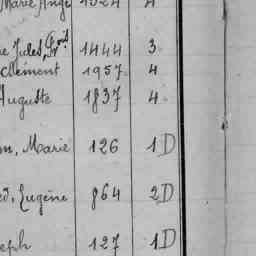 Marie Ange 1324 4
re Jules Fois 1444 3
Clément 1957 4
Auguste 1837 4
m, Marie 126 1 D
ed, Eugène 864 2 D
eph 127 1 D